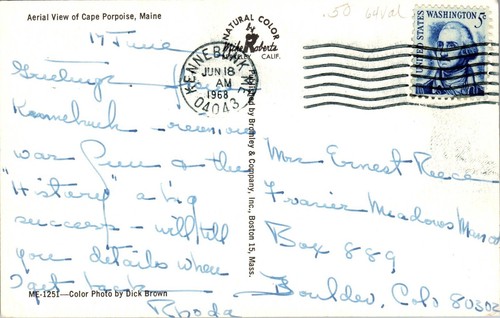 Aerial View of Cape Porpoise, Maine
17 June
Greetings
Kennebunk reunion
was fun & the
"History" a big
success - will tell
you details when
I get back
Rhoda
ME-1251—Color Photo by Dick Brown
NATURAL COLOR
by
Mike Roberts
BERKELEY CALIF.
Published by Bromley & Company, Inc., Boston 15, Mass.
KENNEBUNK ME
JUN 18
AM
1968
04043
.50
UNITED STATES
WASHINGTON 5c
Mrs Ernest Reece
Frasier Meadows Manor
Box 889
Boulder, Colo 80302